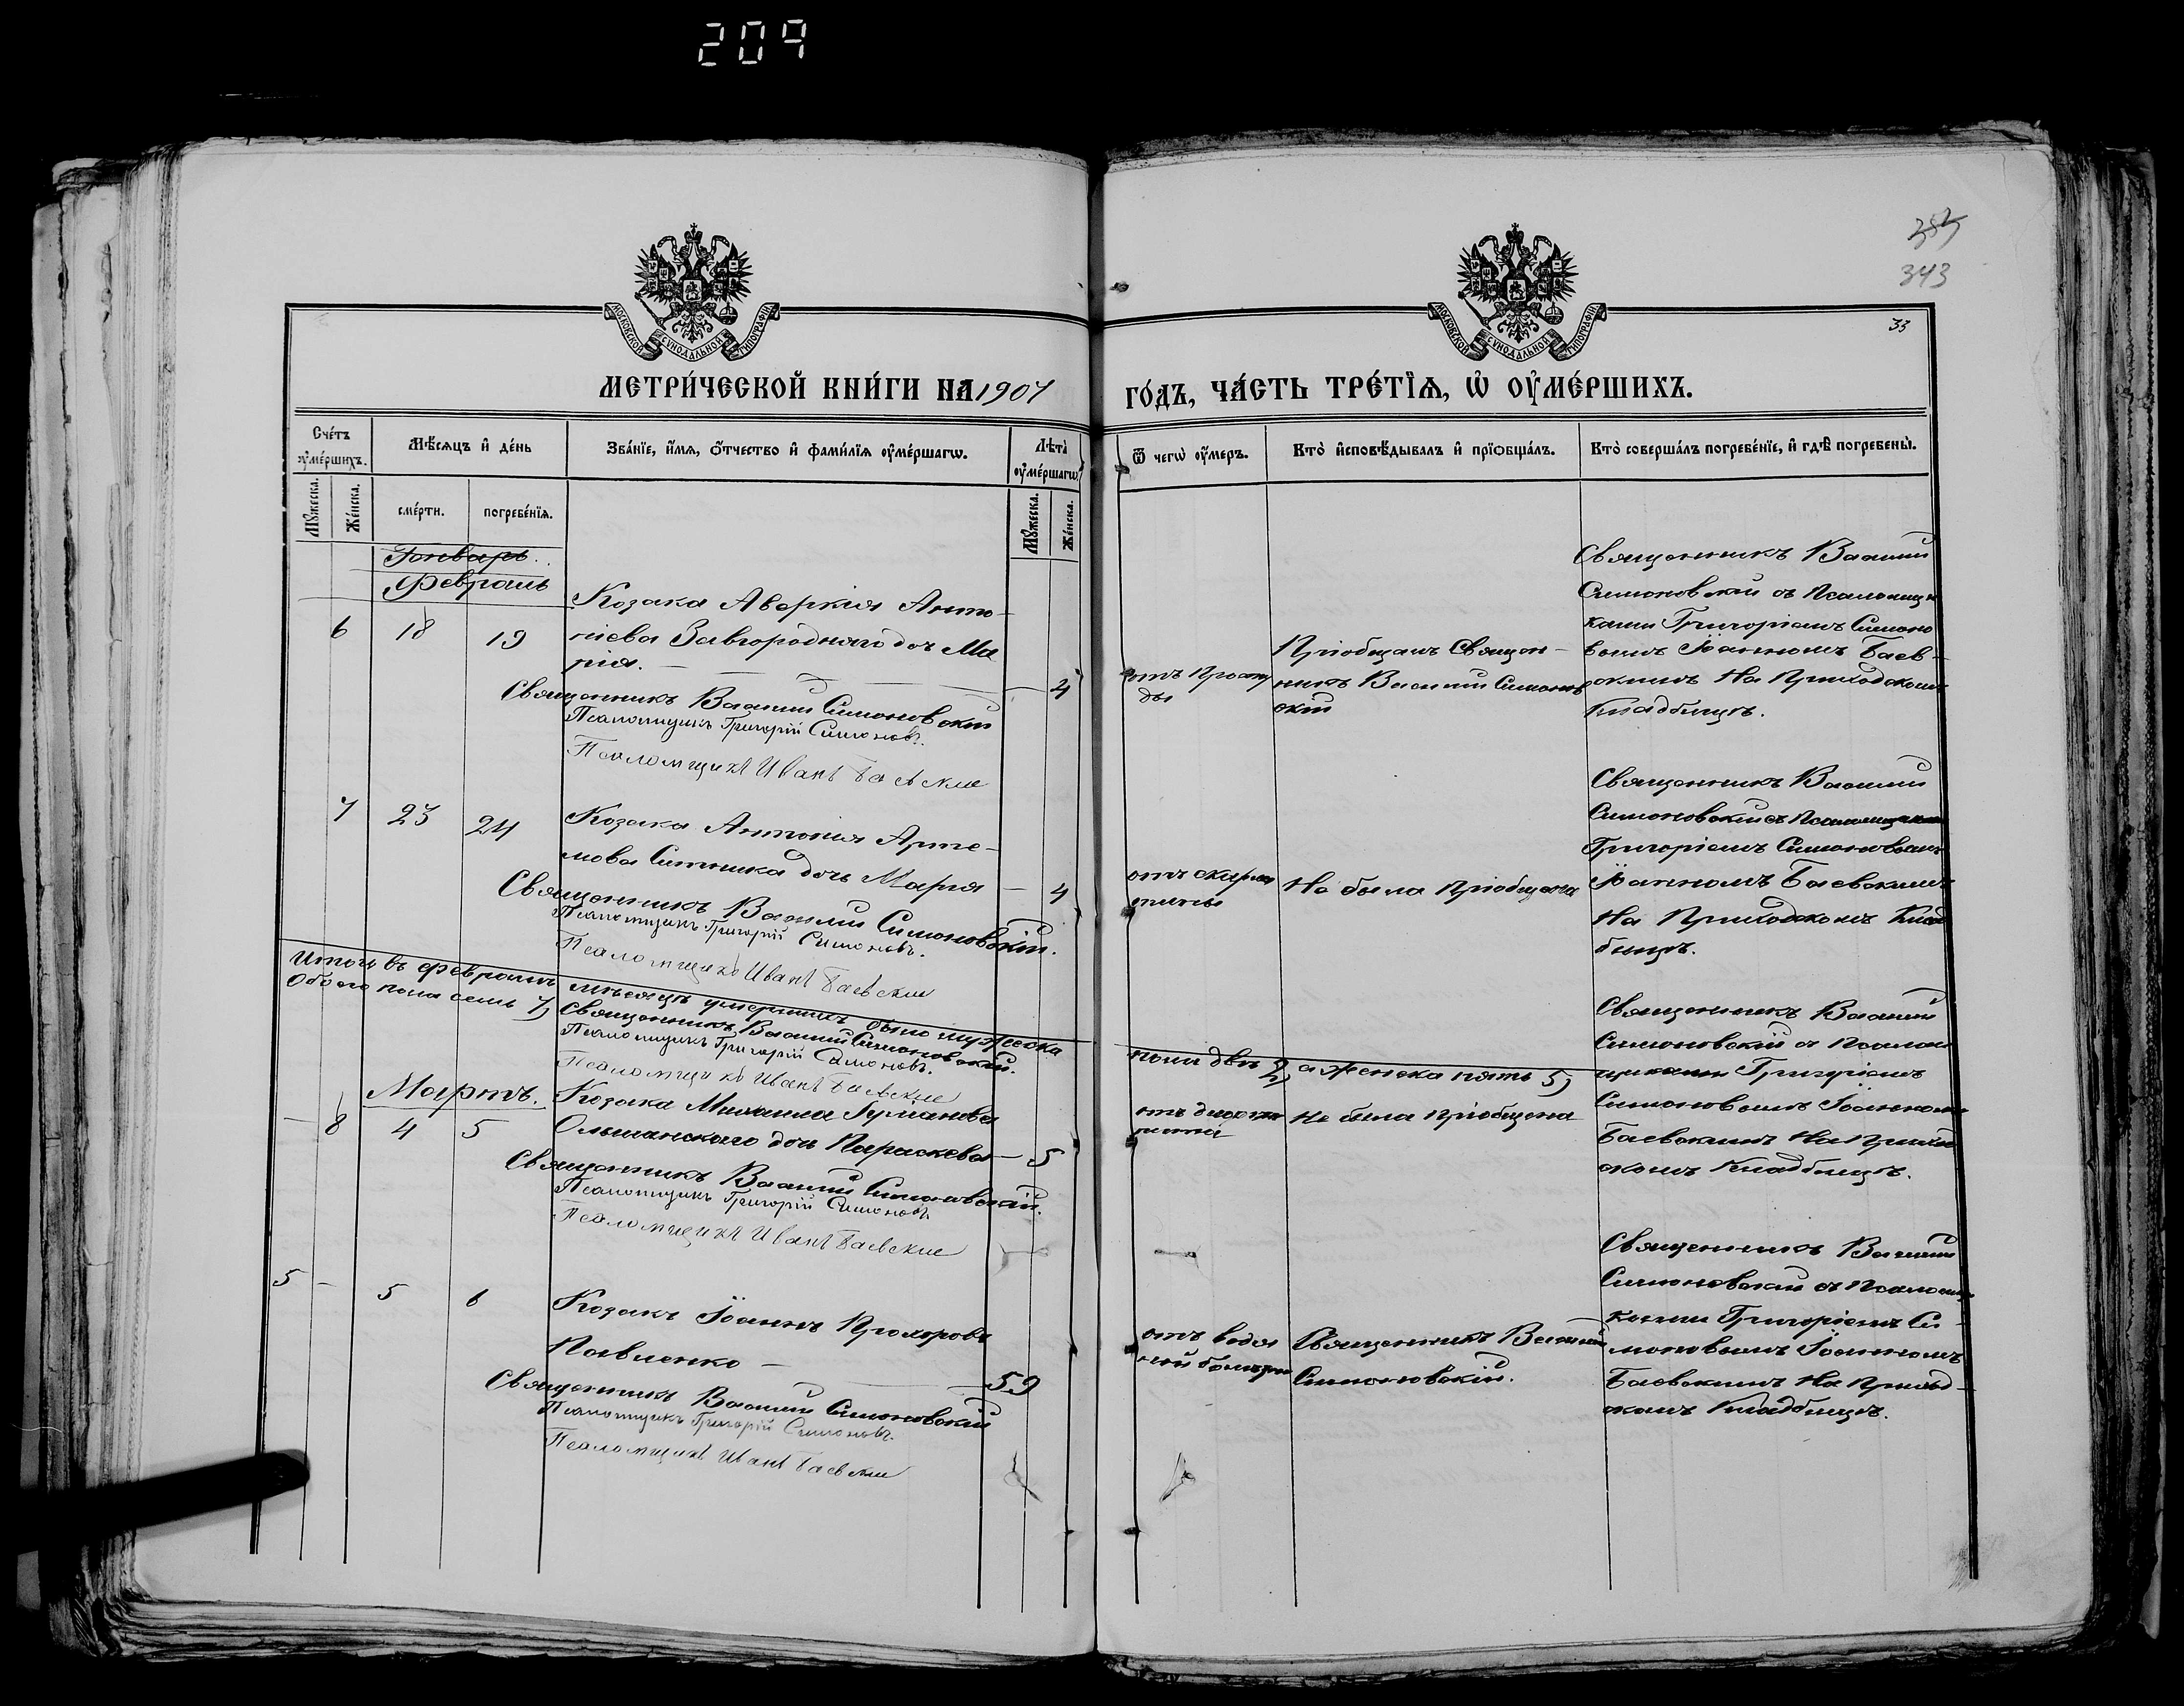 209
385
343
33
МОСКОВСКОЙ СѴНОДАЛЬНОЙ ТИПОГРАФІИ
МОСКОВСКОЙ СѴНОДАЛЬНОЙ ТИПОГРАФІИ
МЕТРИ́ЧЕСКОЙ КНИ́ГИ НА 1907
ГО́ДЪ, ЧА́СТЬ ТРЕ́ТЇѦ, Ѡ҆ ОУ҆МЕ́РШИХЪ.
Сче́тъ оу҆ме́ршихъ.
Мѣ́сѧцъ и҆ де́нь
Зва́нїе, и҆́мѧ, ѻ҆́тчество и҆ фами́лїѧ оу҆ме́ршагѡ.
Лѣ̀та̀ оу҆ме́ршагѡ.
Ѿ чегѡ̀ оу҆́меръ.
Кто̀ и҆сповѣ́дывалъ и҆ прїѻбща́лъ.
Кто̀ соверша́лъ погребе́нїе, и҆ гдѣ̀ погребены̀.
Мꙋ́жеска.
Же́нска.
сме́рти.
погребе́нїѧ.
Мꙋ́жеска.
Же́нска.
Январь.
Февраль
6 18 19
Козака Аверкія Анто-
ніева Завгородняго доч Ма
рія. — 4
Священникъ Василій Симоновскій
Псаломщикъ Григорій Симоновъ.
Псаломщикъ Иванъ Баевский
отъ простуды
Пріобщалъ Священ-
никъ Василій Симонов
скій
Священникъ Василій
Симоновскій съ Псаломщи
ками Григоріемъ Симоно
вымъ Іоанномъ Баев-
скимъ На Приходскомъ
Кладбищѣ.
7 23 24
Козака Антонія Арте-
мова Ситника дочь Марія — 4
Священникъ Василій Симоновскій.
Псаломщикъ Григорій Симоновъ.
Псаломщикъ Иванъ Баевский
отъ скарла
тины
Не была пріобщена
Священникъ Василій
Симоновскій съ Псаломщиками
Григоріемъ Симоновымъ
Іоанномъ Баевскимъ
На Приходскомъ Клад
бищѣ.
Итого въ февралѣ мѣсяцѣ умершихъ было мужеска
пола два 2, а женска пять 5,
Обоего пола семь 7,
Священникъ Василій Симоновскій.
Псаломщикъ Григорій Симоновъ.
Псаломщикъ Иванъ Баевский
Мартъ.
— 8 4 5
Козака Михаила
Ольшанскаго дочь Параскева — 5
Священникъ Василій Симоновскій.
Псаломщикъ Григорій Симоновъ
Псаломщикъ Иванъ Баевский
Не была пріобщена
Священникъ Василій
Симоновскій съ Псалом
щиками Григоріемъ
Симоновымъ Іоанномъ
Баевскимъ На Приход
скомъ Кладбищѣ.
5 — 5 6
Козакъ Іоаннъ Прохоровъ
Павленко — 59
Священникъ Василій Симоновскій
Псаломщикъ Григорій Симоновъ.
Псаломщикъ Иванъ Баевский
отъ водян
ной болѣзни
Священникъ Василій
Симоновскій.
Священникъ Василій
Симоновскій съ Псаломщи
ками Григоріемъ Си-
моновымъ Іоанномъ
Баевскимъ На Приход-
скомъ Кладбищѣ.